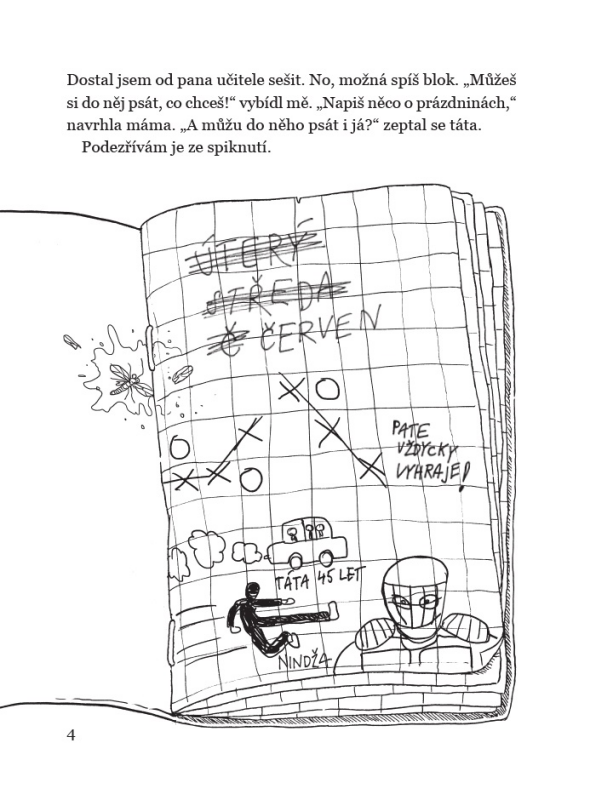 Dostal jsem od pana učitele sešit. No, možná spíš blok. „Můžeš
si do něj psát, co chceš!“ vybídl mě. „Napiš něco o prázdninách,“
navrhla máma. „A můžu do něho psát i já?“ zeptal se táta.
Podezřívám je ze spiknutí.
ÚTERÝ
STŘEDA
Č ČERVEN
PATE
VŽDYCKY
VYHRAJE!
TÁTA 45 LET
NINDŽA
4